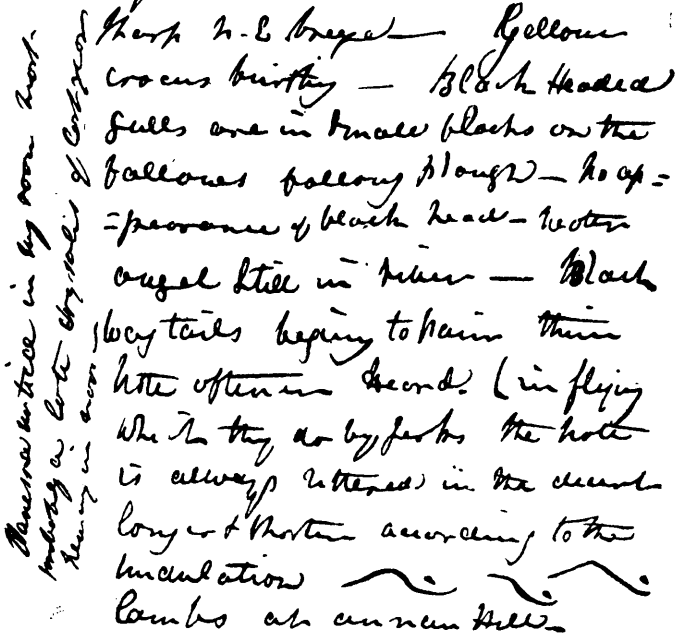 Sharp N. E breeze — Yellow
crocus bursting — Black Headed
Gulls are in small flocks on the
fallows following plough — No ap=
=pearance of black head — Water
ouzel still in river — Black
Wagtails begin to pair their
note often heard. (in flying
which they do by jerks the note
is always uttered in the descent
longer & shorter according to the
undulation
lambs at Annan Hill.
Vanessa urticae in my room most-
probably a late chrysalis of last year